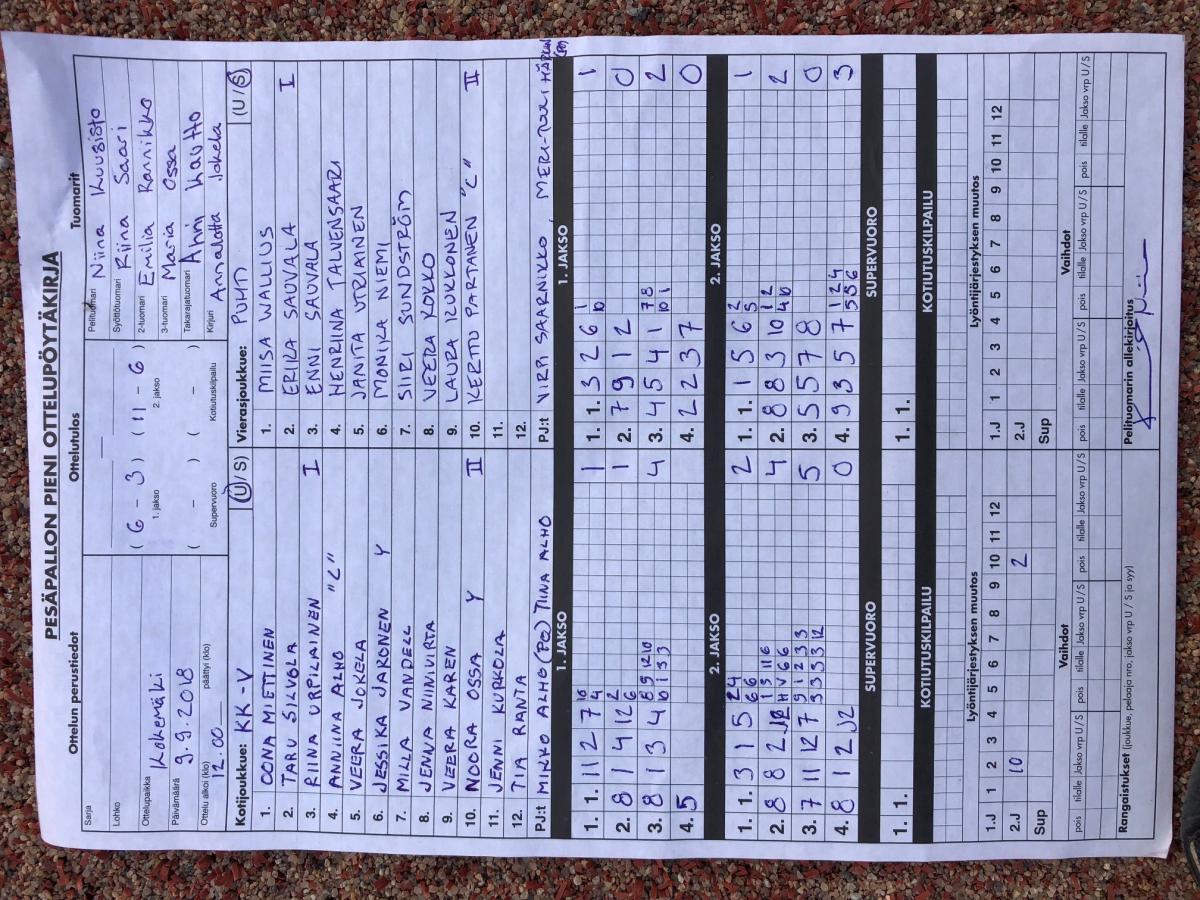 PESÄPALLON PIENI OTTELUPÖYTÄKIRJA
Ottelun perustiedot Ottelutulos Tuomarit
Sarja
Lohko
Ottelupaikka Kokemäki
Päivämäärä 9.9.2018
Ottelu alkoi (klo) 12.00 päättyi (klo)
( 6 - 3 ) ( 11 - 6 )
1. jakso 2. jakso
( - ) ( - )
Supervuoro Kotiutuskilpailu
Pelituomari Niina Kuusisto
Syöttötuomari Riina Saari
2-tuomari Emilia Rannikko
3-tuomari Maria Ossa
Takarajatuomari Ahti Kautto
Kirjuri Annalotta Jokela
Kotijoukkue: KK-V (U/S)
1. OONA MIETTINEN
2. TARU SILVOLA
3. RIINA URPILAINEN I
4. ANNIINA ALHO "C"
5. VEERA JOKELA
6. JESSIKA JAIRONEN Y
7. MILLA VANDELL
8. JENNA NIINIVIRTA
9. VEERA KAREN
10. NOORA OSSA Y II
11. JENNI KURKOLA
12. TIA RANTA
PJ:t MIKKO ALHO (PQ) TIINA ALHO
Vierasjoukkue: PUHTI (U/S)
1. MIISA WALLIUS
2. ERIKA SAUVALA I
3. ENNI SAUVALA
4. HENRIINA TALVENSAARI
5. JANITA UTRIAINEN
6. MONIKA NIEMI
7. SIIRI SUNDSTRÖM
8. VEERA KOKKO
9. LAURA KUKKONEN
10. KERTTU PARTANEN "C" II
11.
12.
PJ:t VIRPI SAARNIKKO, MERI-TUULI
1. JAKSO 1. JAKSO
1. 1. 11 2 7 10 4 1
2. 8 1 4 12 2 6 1
3. 8 1 3 4 8 9 12 10 10 1 3 3 4
4. 5
1. 1. 3 2 6 1 10 1
2. 7 9 1 2 0
3. 4 5 4 1 7 8 10 1 2
4. 2 2 3 7 0
2. JAKSO 2. JAKSO
1. 1. 3 1 5 2 4 6 6 2
2. 8 8 2 1 3 11 6 H V 6 6 4
3. 7 11 12 7 9 1 2 3 3 3 3 3 3 12 5
4. 8 1 2 J2 0
1. 1. 1 5 6 2 5 1
2. 8 8 3 10 1 2 4 10 2
3. 5 5 7 8 0
4. 9 3 5 7 1 2 4 5 5 6 3
SUPERVUORO SUPERVUORO
1. 1. 1. 1.
KOTIUTUSKILPAILU KOTIUTUSKILPAILU
Lyöntijärjestyksen muutos Lyöntijärjestyksen muutos
1.J 1 2 3 4 5 6 7 8 9 10 11 12 1.J 1 2 3 4 5 6 7 8 9 10 11 12
2.J 10 2 2.J
Sup Sup
Vaihdot Vaihdot
pois tilalle Jakso vrp U/S pois tilalle Jakso vrp U/S pois tilalle Jakso vrp U/S pois tilalle Jakso vrp U/S pois tilalle Jakso vrp U/S pois tilalle Jakso vrp U/S
Rangaistukset (joukkue, pelaaja nro, jakso vrp U / S ja syy) Pelituomarin allekirjoitus